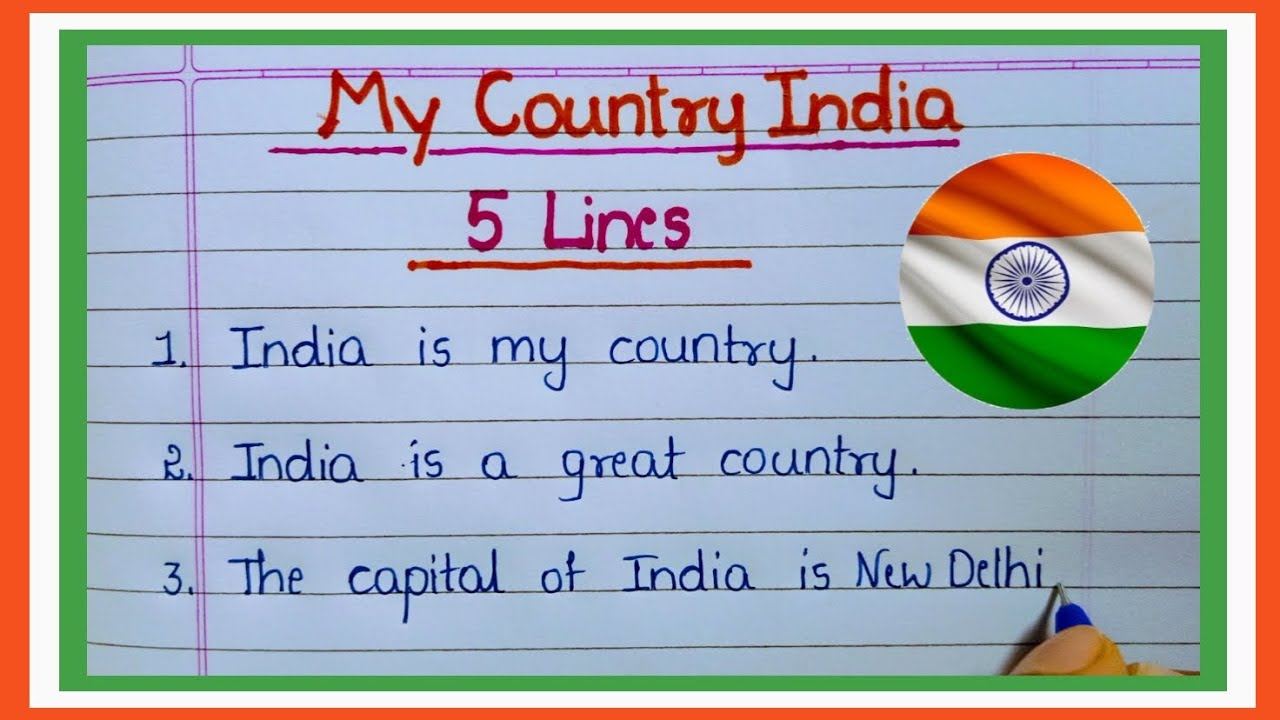 My Country India
5 Lines
1. India is my country.
2. India is a great country.
3. The capital of India is New Delhi.